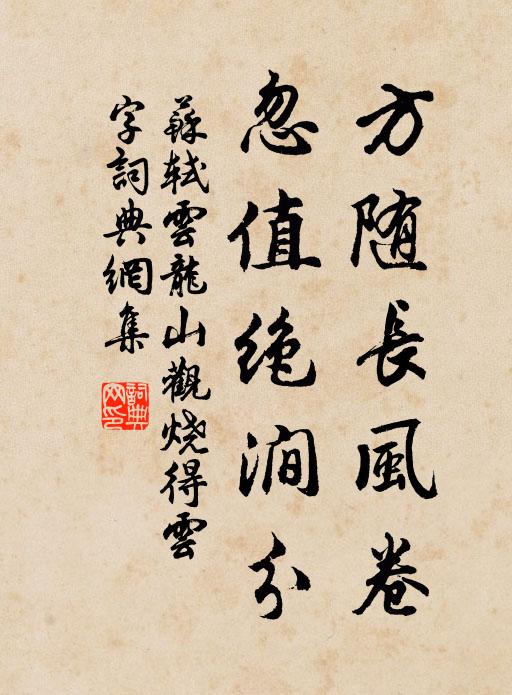 方随長風卷
忽值絶澗分
蘇軾雲龍山觀烧得雲
字詞典網集
詞典
网印